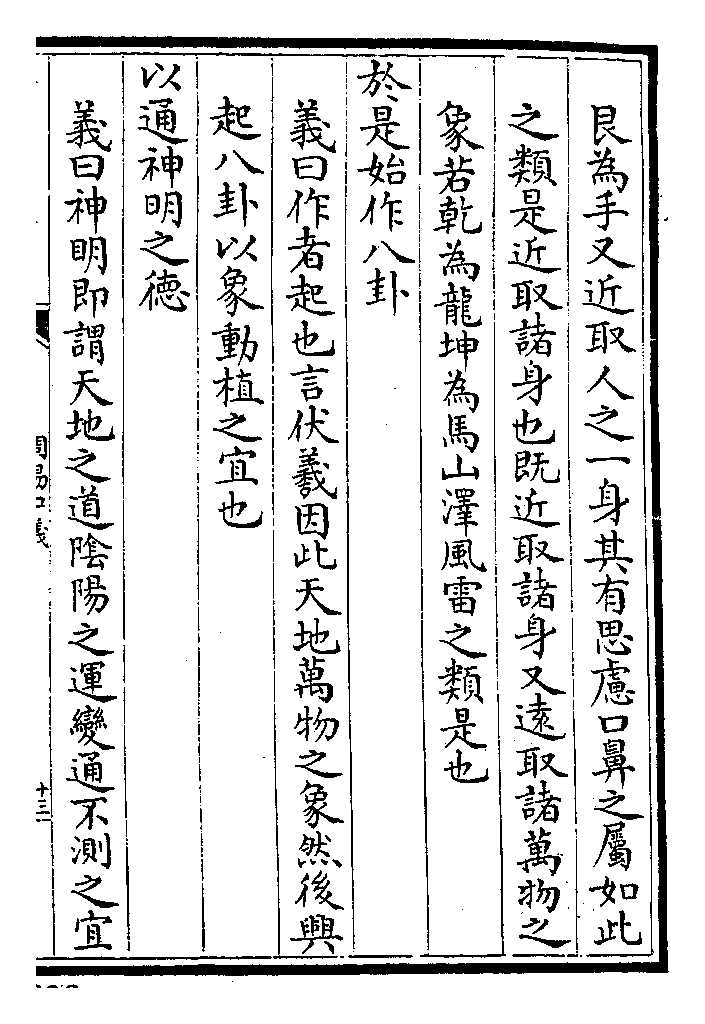 艮為手又近取人之一身其有思慮口鼻之屬如此
之類是近取諸身也既近取諸身又遠取諸萬物之
象若乾為龍坤為馬山澤風雷之類是也
於是始作八卦
義曰作者起也言伏羲因此天地萬物之象然後興
起八卦以象動植之宜也
以通神明之德
義曰神明即謂天地之道陰陽之運變通不測之宜